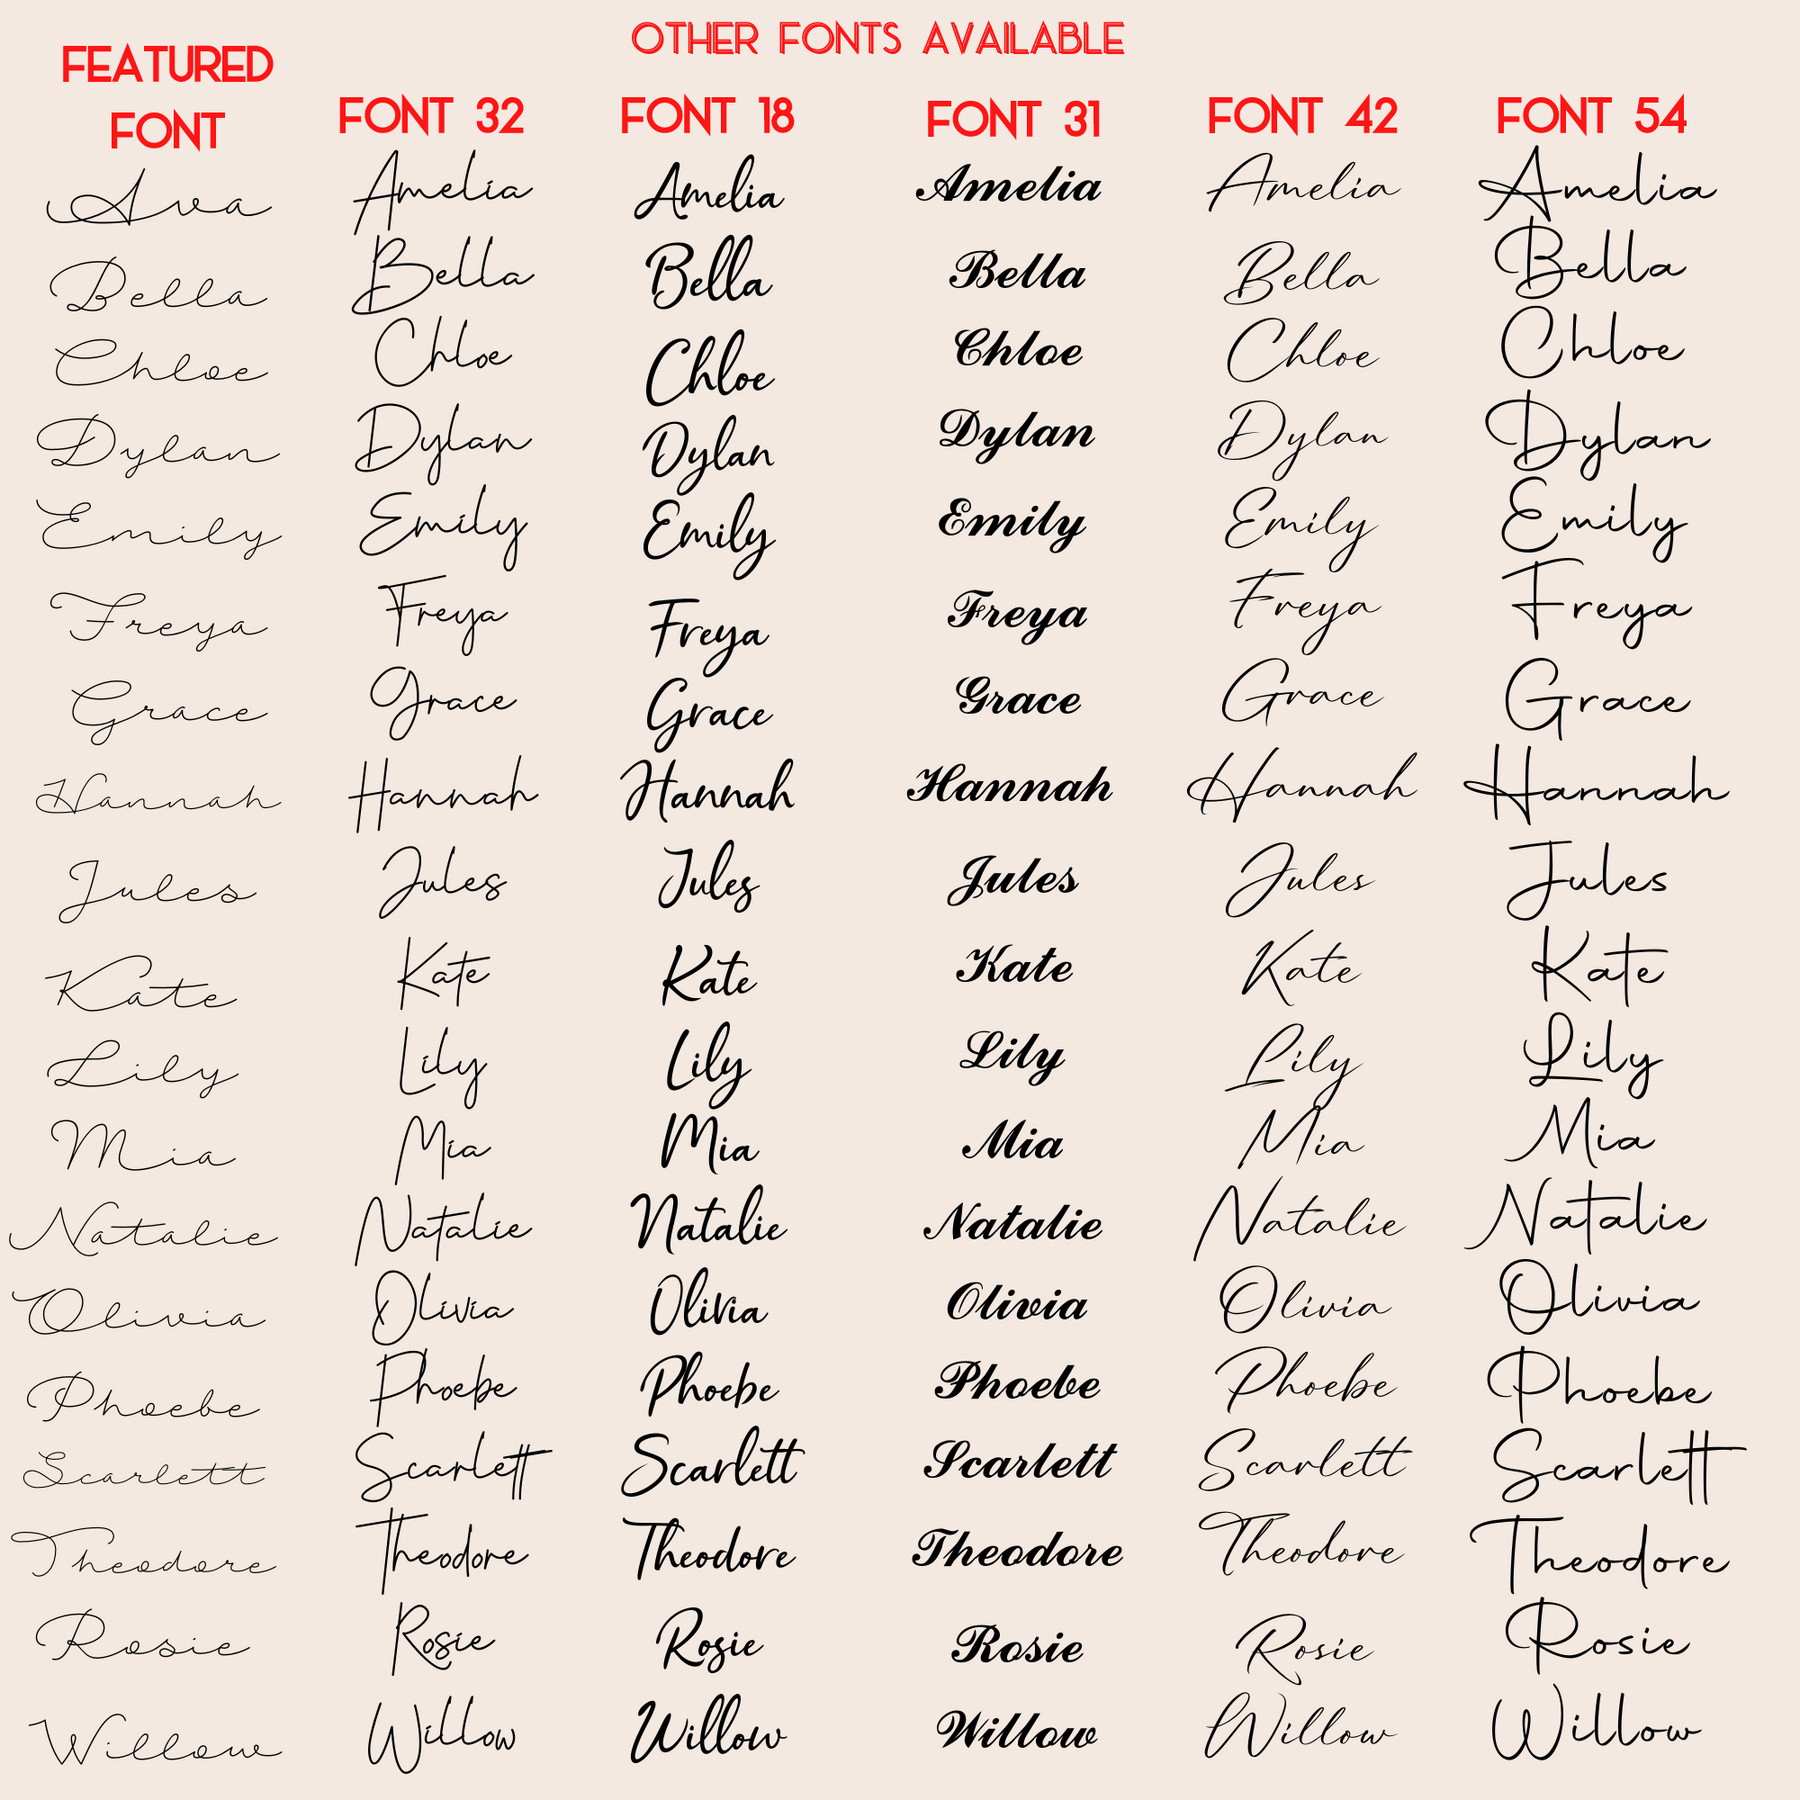 OTHER FONTS AVAILABLE
FEATURED FONT
FONT 32 FONT 18 FONT 31 FONT 42 FONT 54
Ava Amelia Amelia Amelia Amelia Amelia
Bella Bella Bella Bella Bella Bella
Chloe Chloe Chloe Chloe Chloe Chloe
Dylan Dylan Dylan Dylan Dylan Dylan
Emily Emily Emily Emily Emily Emily
Freya Freya Freya Freya Freya Freya
Grace Grace Grace Grace Grace Grace
Hannah Hannah Hannah Hannah Hannah Hannah
Jules Jules Jules Jules Jules Jules
Kate Kate Kate Kate Kate Kate
Lily Lily Lily Lily Lily Lily
Mia Mia Mia Mia Mia Mia
Natalie Natalie Natalie Natalie Natalie Natalie
Olivia Olivia Olivia Olivia Olivia Olivia
Phoebe Phoebe Phoebe Phoebe Phoebe Phoebe
Scarlett Scarlett Scarlett Scarlett Scarlett Scarlett
Theodore Theodore Theodore Theodore Theodore Theodore
Rosie Rosie Rosie Rosie Rosie Rosie
Willow Willow Willow Willow Willow Willow